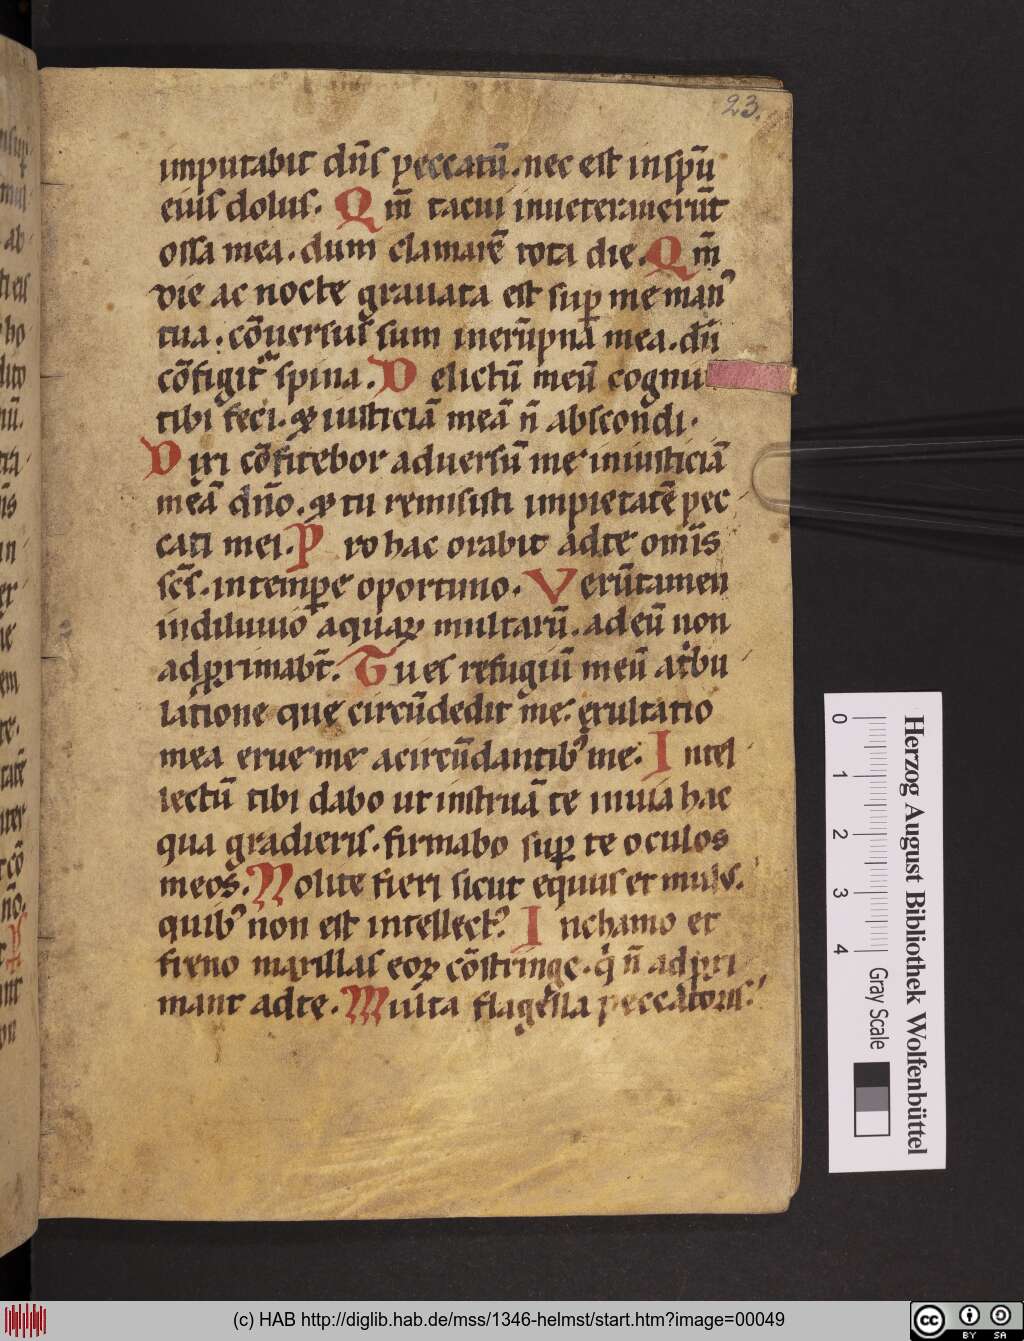 23.
imputabit dn̄s peccatū. nec est in spū
eius dolus. Qm̄ tacui inueterauerūt
ossa mea. dum clamarē tota die. Qm̄
die ac nocte grauata est sup me man᾽
tua. cōuersus sum in erūpna mea. dū
cōfigit᾽ spina. Delictū meū cognitū
tibi feci. ⁊ iusticiā meā n̄ abscondi.
Dixi cōfitebor aduersū me iniusticiā
meā dn̄o. ⁊ tu remisisti impietatē pec
cati mei. Pro hac orabit ad te omīs
scs̄. in tempe oportuno. Verūtamen
in diluuio aquaꝝ multarū. ad eū non
adprimabt̄. Tu es refugiū meū a tbu
latione que circūdedit me. exultatio
mea erue me a circūdantib᾽ me. Intel
lectū tibi dabo ut instruā te in uia hac
qua gradieris. firmabo sup te oculos
meos. Nolite fieri sicut equus et mulus.
quib᾽ non est intellect᾽. In chamo et
freno maxillas eoꝝ cōstringe. q̇ n̄ adpxi
mant ad te. Multa flagella peccatoris.
0 1 2 3 4
Herzog August Bibliothek Wolfenbüttel
Gray Scale
(c) HAB http://diglib.hab.de/mss/1346-helmst/start.htm?image=00049
cc BY SA